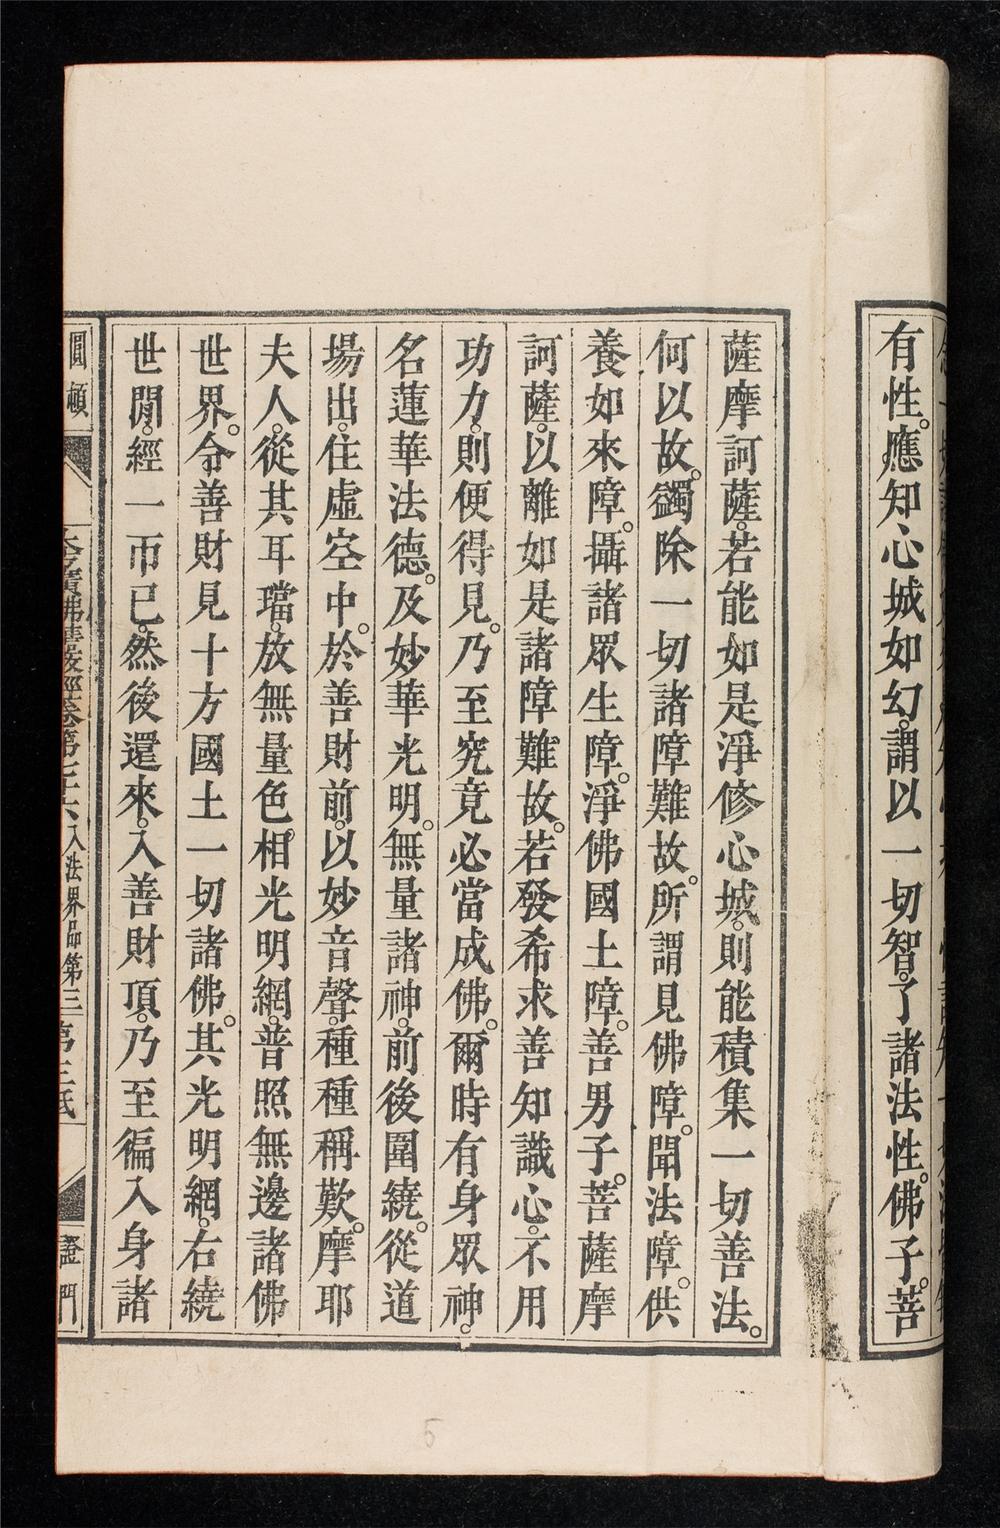 有性。應知心城如幻。謂以一切智。了諸法性。佛子。菩
薩摩訶薩。若能如是淨修心城。則能積集一切善法。
何以故。蠲除一切諸障難故。所謂見佛障。聞法障。供
養如來障。攝諸眾生障。淨佛國土障。善男子。菩薩摩
訶薩。以離如是諸障難故。若發希求善知識心。不用
功力。則便得見。乃至究竟必當成佛。爾時有身眾神。
名蓮華法德。及妙華光明。無量諸神。前後圍繞。從道
場出。住虛空中。於善財前。以妙音聲。種種稱歎。摩耶
夫人。從其耳璫。放無量色。相光明網。普照無邊諸佛
世界。令善財見十方國土一切諸佛。其光明網。右繞
世閒。經一帀已。然後還來。入善財頂。乃至徧入身諸
圓頓
華嚴經卷第
入法界品第三
證門
5